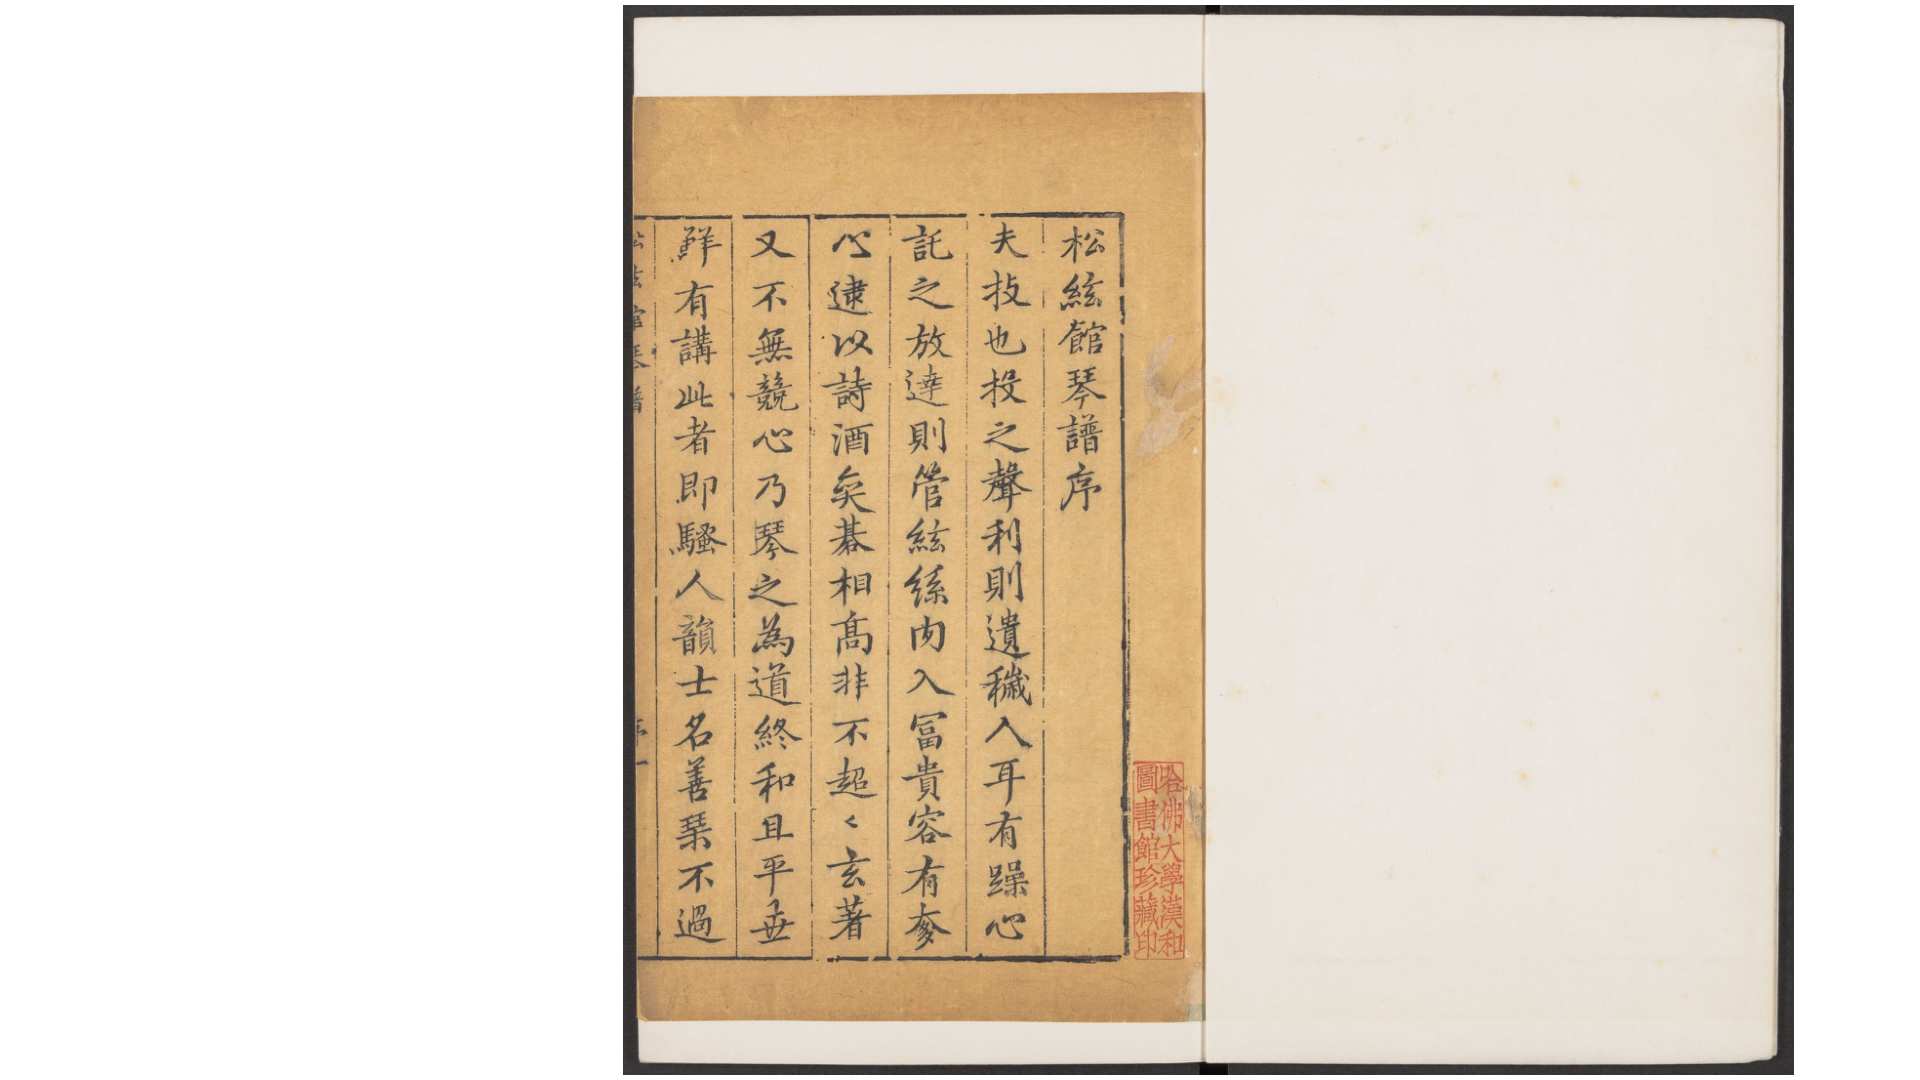 松絃館琴譜序
夫技也投之聲利則遺穢入耳有躁心
託之放達則管絃絲肉入冨貴容有奓
心逮以詩酒矣碁相髙非不超〻玄著
又不無競心乃琴之為道終和且平世
鮮有講此者即騷人韻士名善琹不過
松絃館琴譜
序一
哈佛大學漢和
圖書館珍藏印